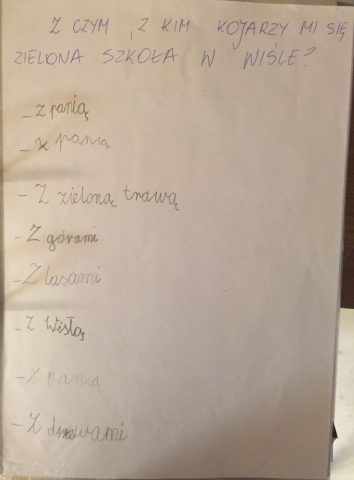 Z CZYM , Z KIM KOJARZY MI SIĘ
ZIELONA SZKOŁA W WIŚLE?
- z panią
- z panią
- Z zieloną trawą
- Z górami
- Z lasami
- Z Wisłą
- Z panią
- Z drzewami